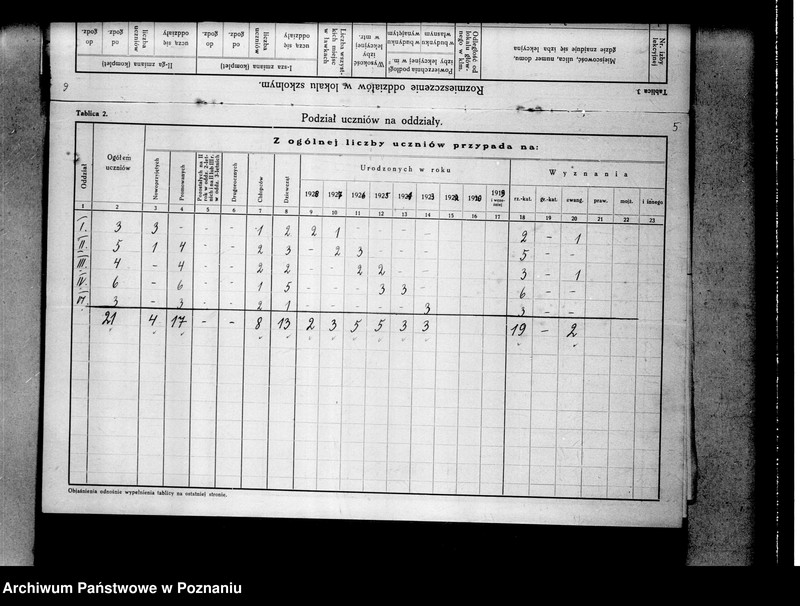 Tablica 3
Rozmieszczenie oddziałów w lokalu szkolnym.
6
Nr. izby lekcyjnej
Miejscowość, ulica, numer domu, gdzie znajduje się izba lekcyjna
Odległość od lokalu głównego w klm.
Powierzchnia podłogi izby lekcyjnej w m.²
w budynku własnym
w budynku wynajętym
Wysokość izby lekcyjnej w mtr.
Liczba wszystkich miejsc w ławkach
I-sza zmiana (komplet)
uczą się oddziały
liczba uczniów
od godz.
do godz.
II-ga zmiana (komplet)
uczą się oddziały
liczba uczniów
od godz.
do godz.
Tablica 2.
Podział uczniów na oddziały.
5
Oddział
Ogółem uczniów
Z ogólnej liczby uczniów przypada na:
Nowoprzyjętych
Promowanych
Drugorocznych
Chłopców
Dziewcząt
Urodzonych w roku
1928 1927 1926 1925 1924 1923 1919 i wcześniej
Wyznania
rz.-kat. gr.-kat. ewang. praw. mojż. i innego
1 2 3 4 5 6 7 8 9 10 11 12 13 14 15 16 17 18 19 20 21 22 23
I. 3 3 - - - 1 2 2 1 - - - - 2 - 1
II. 5 1 4 - - 2 3 - 2 3 - - - 5 - -
III. 4 - 4 - - 2 2 - - 2 2 - - 3 - 1
IV. 6 - 6 - - 1 5 - - - 3 3 - 6 - -
3 - 3 - - 2 1 - - - - - 3 3 - -
21 4 17 - - 8 13 2 3 5 5 3 3 19 - 2
Objaśnienia odnośnie wypełnienia tablicy na ostatniej stronie.
Archiwum Państwowe w Poznaniu